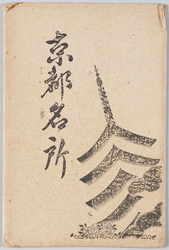 京都名所